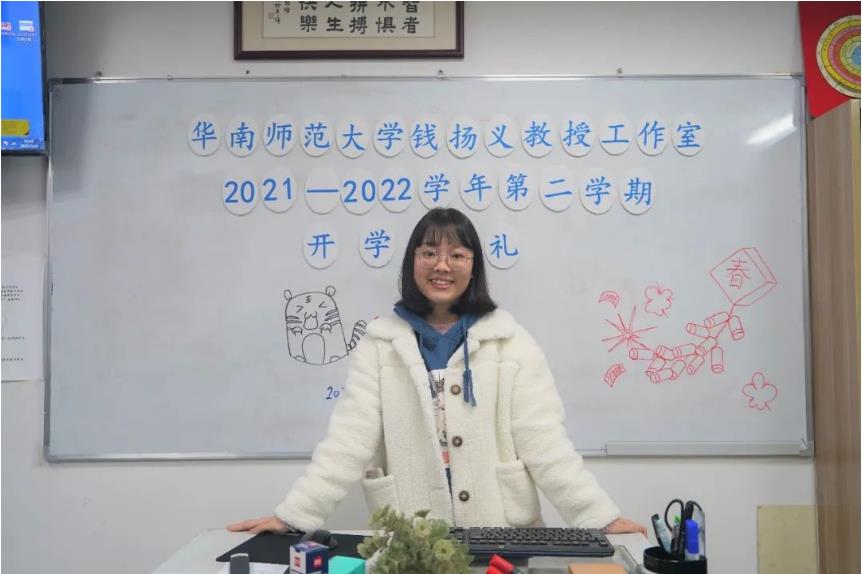 智者
惧
拼搏
人生
快樂
华南师范大学钱扬义教授工作室
2021—2022学年第二学期
开学 礼
王
春
20